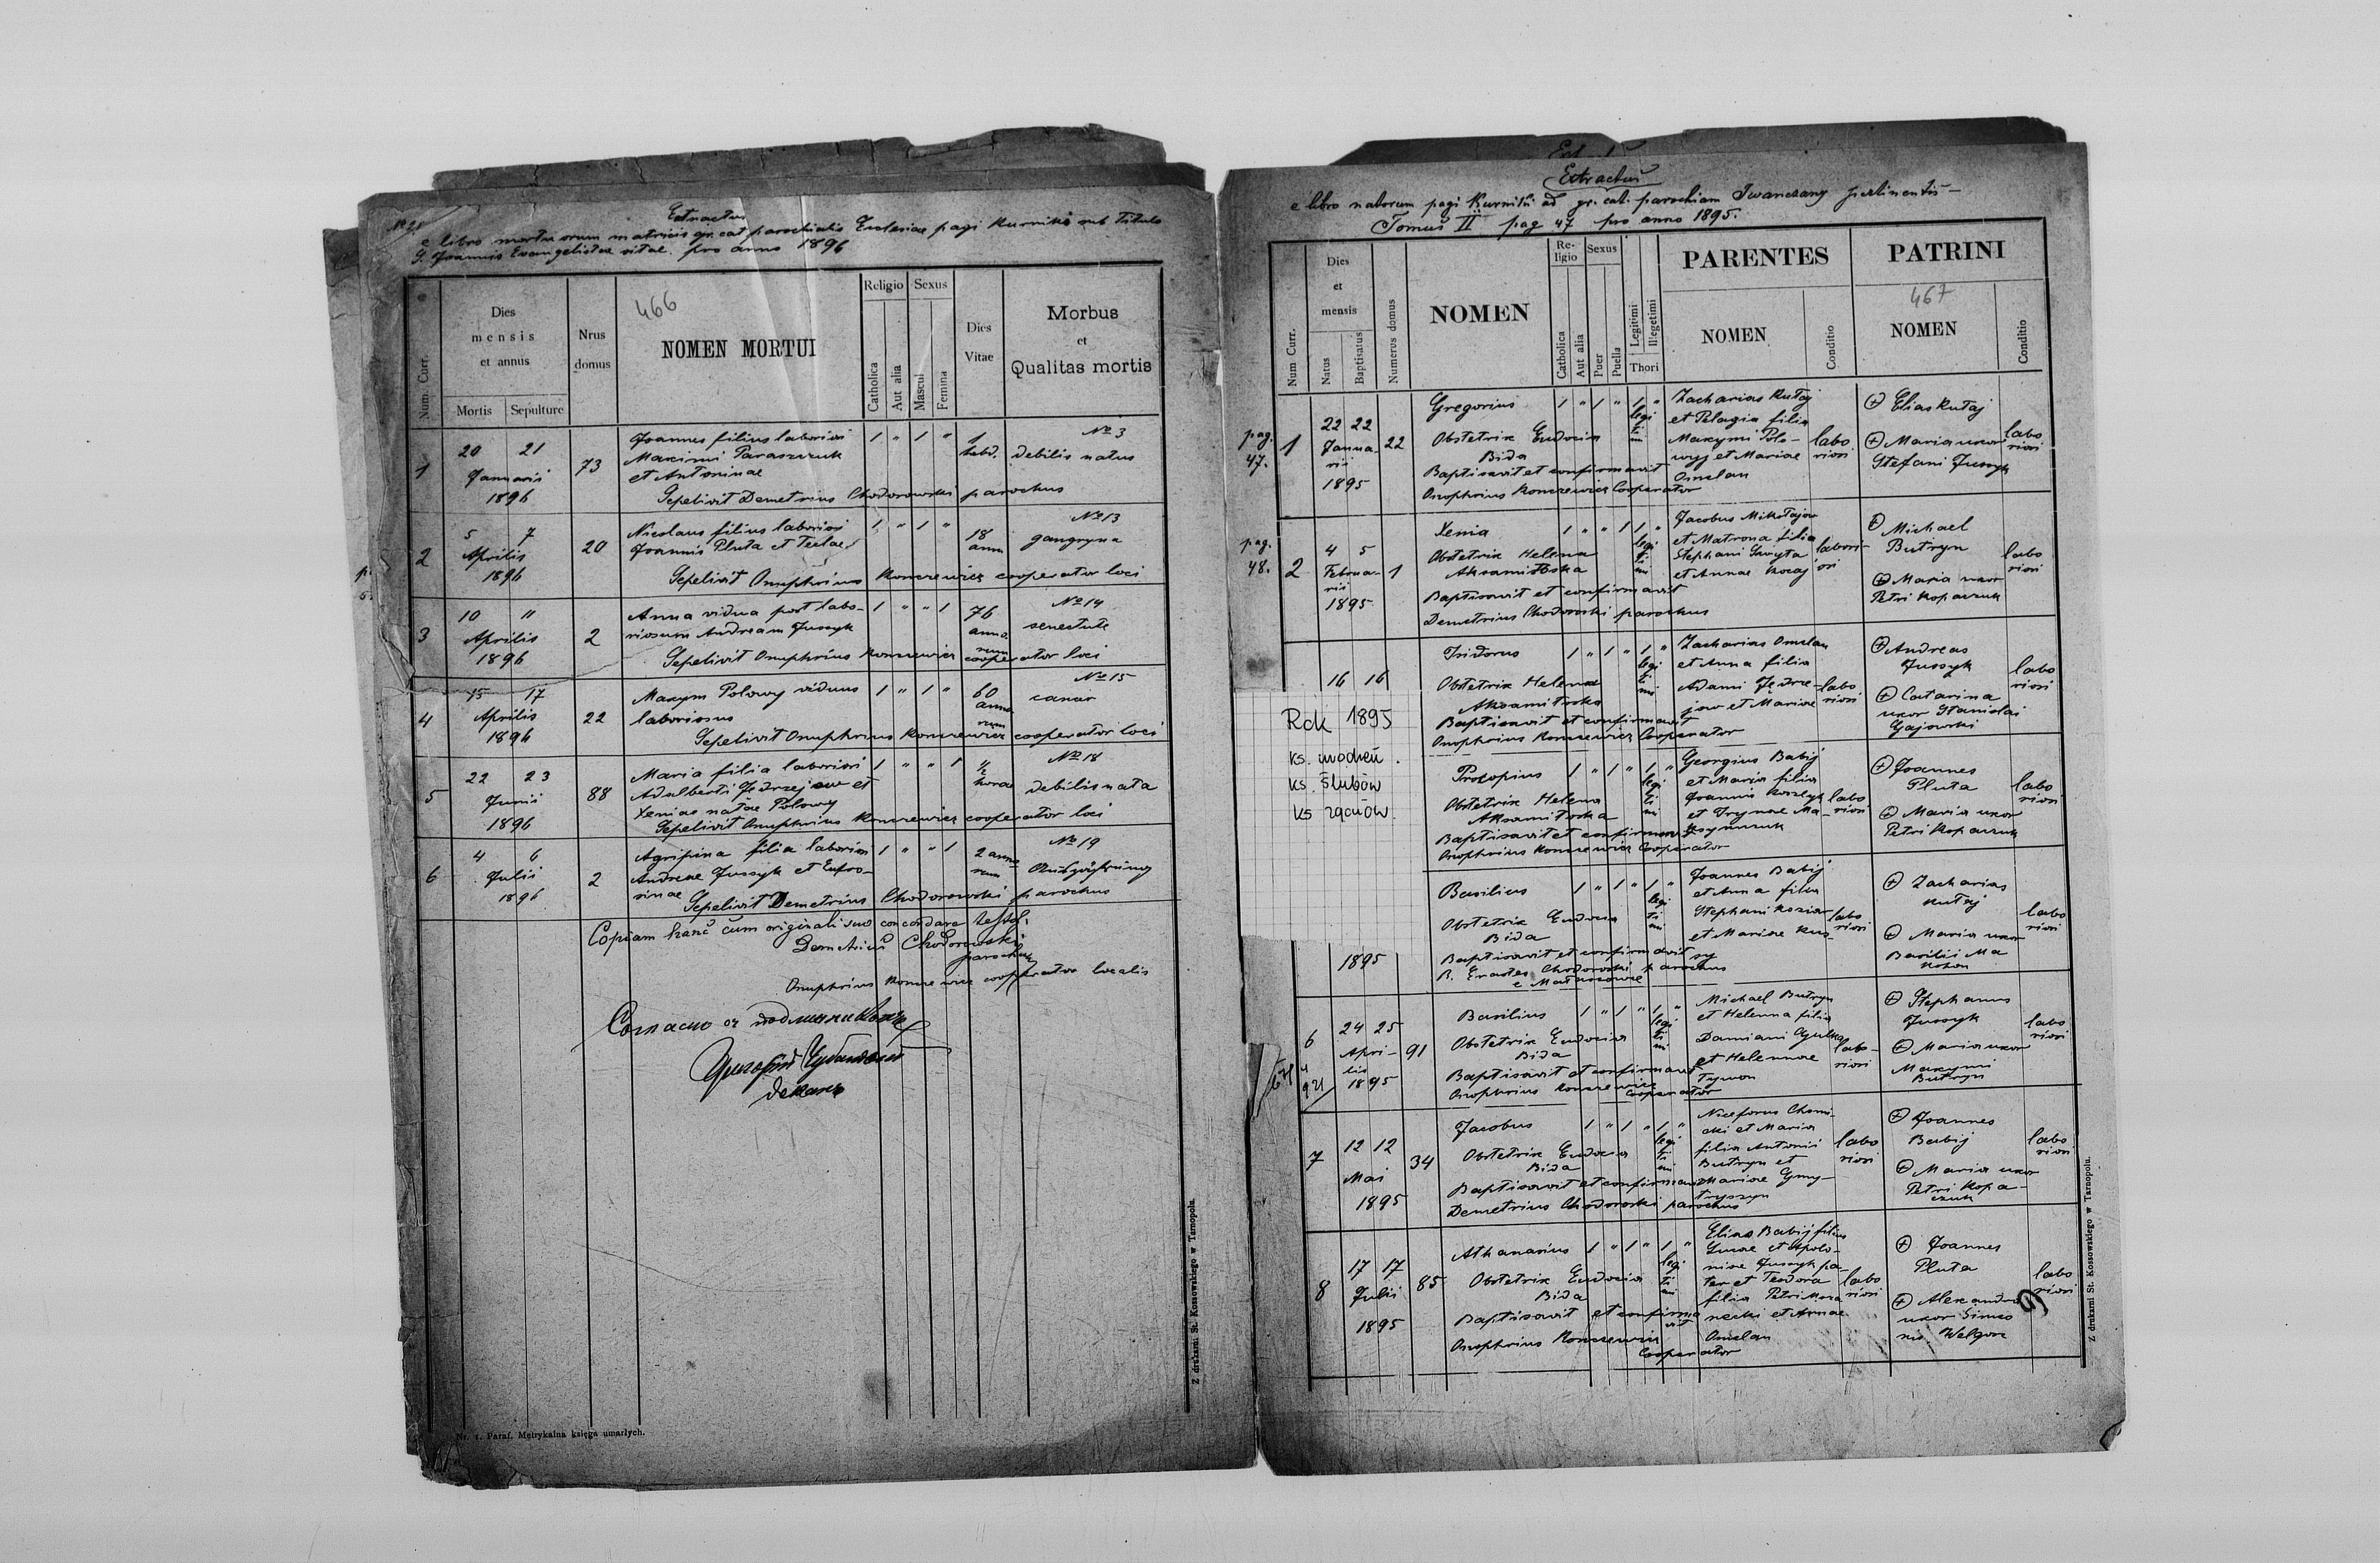 Extractus
e libro mortuorum matricis gr. cat parochialis Ecclesiae pagi Kurniki sub Titulo
S. Joannis Evangelistae vitae. pro anno 1896
Num. Curr.
Dies
mensis
et annus
Mortis
Sepulture
Nrus
domus
466
NOMEN MORTUI
Religio
Catholica
Aut alia
Sexus
Mascul
Femina
Dies
Vitae
Morbus
et
Qualitas mortis
1
20 21
Januarii
1896
73
Joannes filius laboriosi
Maximi Paraszczuk
et Antoninae
Sepelivit Demetrius Chodorowski parochus
1 " 1 "
1
hebd.
№ 3
debilis natus
2
5 7
Aprilis
1896
20
Nicolaus filius laboriosi
Joannis Pluta et Teclae
Sepelivit Onuphrius Konczewicz cooperator loci
1 " 1 "
18
ann
№ 13
gangryna
3
10 "
Aprilis
1896
2
Anna vidua post labo-
riosum Andream Jussyk
Sepelivit Onuphrius Konczewicz cooperator loci
1 " " 1
76
anno
rum
№ 14
senectute
4
15 17
Aprilis
1896
22
Maxym Polowy viduus
laboriosus
Sepelivit Onuphrius Konczewicz cooperator loci
1 " 1 "
60
anno
rum
№ 15
cancer
5
22 23
Junii
1896
88
Maria filia laboriosi
Adalberti Jedrzejow et
Xeniae natae Polowy
Sepelivit Onuphrius Konczewicz cooperator loci
1 " " 1
½
horae
№ 18
debilis nata
6
4 6
Julii
1896
2
Agripina filia laboriosi
Andreae Jussyk et Eufro-
sinae
Sepelivit Demetrius Chodorowski parochus
1 " " 1
2 anno
rum
№ 19
Copiam hanc cum originali suo concordare testor.
Demetrius Chodorowski
parochus
Onuphrius Konczewicz cooperator localis
Nr. 1. Paraf. Metrykalna księga umarłych.
Z drukarni St. Kossowskiego w Tarnopolu.
Extractus
e libro natorum pagi Kurniki ad gr. cat. parochiam Iwanczany pertinentis
Tomus II pag 47 pro anno 1895.
Num Curr.
Dies
et
mensis
Natus
Baptisatus
Numerus domus
NOMEN
Re-
ligio
Catholica
Aut alia
Sexus
Puer
Puella
Legitimi
Illegetimi
Thori
PARENTES
NOMEN
Conditio
PATRINI
467
NOMEN
Conditio
pag.
47.
1
22 22
Janua-
rii
1895
22
Gregorius
Obstetrix Eudocia
Bida
Baptisavit et confirmavit
Onophrius Konczewicz Cooperator
1 " 1 " 1 "
legi
ti
mi
Zacharias Kutaj
et Pelagia filia
Maxymi Polo-
wyj et Mariae
Omelan
labo
riosi
Elias Kutaj
Maria uxor
Stefani Jussyk
labo
riosi
pag.
48.
2
4 5
Februa-
rii
1895
1
Xenia
Obstetrix Helena
Aksamitoska
Baptisavit et confirmavit
Demetrius Chodoroski parochus
1 " " 1 1 "
legi
ti
mi
Jacobus Mikołajow
et Matrona filia
et Annae
labori-
osi
Michael
Butryn
Maria uxor
Petri Kopaczuk
labo
riosi
16 16
Isidorus
Obstetrix Helena
Aksamitoska
Baptisavit et confirmavit
Onophrius Konczewicz Cooperator
1 " 1 " 1 "
legi
ti
mi
Zacharias Omelan
et Anna filia
Adami Jedrze-
jow et Mariae
labo
riosi
Andreas
Jussyk
Catarina
uxor Stanislai
Gajowski
labo
riosi
Rok 1895
ks. urodzeń.
ks. ślubów
ks zgonów.
Procopius
Obstetrix Helena
Aksamitoska
Baptisavit et confirmavit
Onophrius Konczewicz Cooperator
1 " 1 " 1 "
legi
ti
mi
Georgius Babij
et Maria filia
et Irynae Ma-
labo
riosi
Joannes
Pluta
Maria uxor
Petri Kopaczuk
labo
riosi
1895
Basilius
Obstetrix Eudocia
Bida
Baptisavit et confirmavit
1 " 1 " 1 "
legi
ti
mi
Joannes Babij
et Anna filia
Stephani Koziar
et Mariae Kus-
sy
labo
riosi
Zacharias
Kutaj
Maria uxor
Basilii Ma
labo
riosi
6
24 25
Apri-
lis
1895
91
Basilius
Obstetrix Eudocia
Bida
Baptisavit et confirmavit
Onophrius Konczewicz
Cooperator
1 " 1 " 1 "
legi
ti
mi
Michael Butryn
et Helena filia
Damiani
et Helenae
Tymon
labo-
riosi
Stephanus
Jussyk
Maria uxor
Maxymi
Butryn
labo
riosi
7
12 12
Mai
1895
34
Jacobus
Obstetrix Eudocia
Bida
Baptisavit et confirmavit
Demetrius Chodoroski parochus
1 " 1 " 1 "
legi
ti
mi
Niceforus Chomi-
cki et Maria
filia Antonii
Butryn et
Mariae Gmy-
tryszyn
labo
riosi
Joannes
Babij
Maria uxor
Petri Kopa-
czuk
labo
riosi
8
17 17
Julii
1895
85
Athanasius
Obstetrix Eudocia
Bida
Baptisavit et confirma
vit
Onophrius Konczewicz
Cooperator
1 " 1 " 1 "
legi
ti
mi
Elias Babij filius
Lucae et Apolo-
niae Jussyk pa-
ter et Teodora
filia Petri Moza
necki et Annae
Omelan
labo
riosi
Joannes
Pluta
Alexandra
uxor Simeo
nis
labo
riosi
Z drukarni St. Kossowskiego w Tarnopolu.